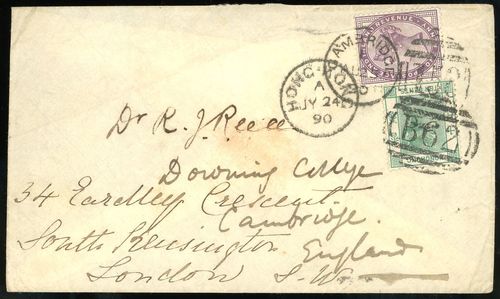 HONG KONG
A
JY 24
90
CAMBRIDGE
B62
Dr R. J. Reece
Downing College
34 Eardley Crescent
Cambridge.
South Kensington
England
London S.W.